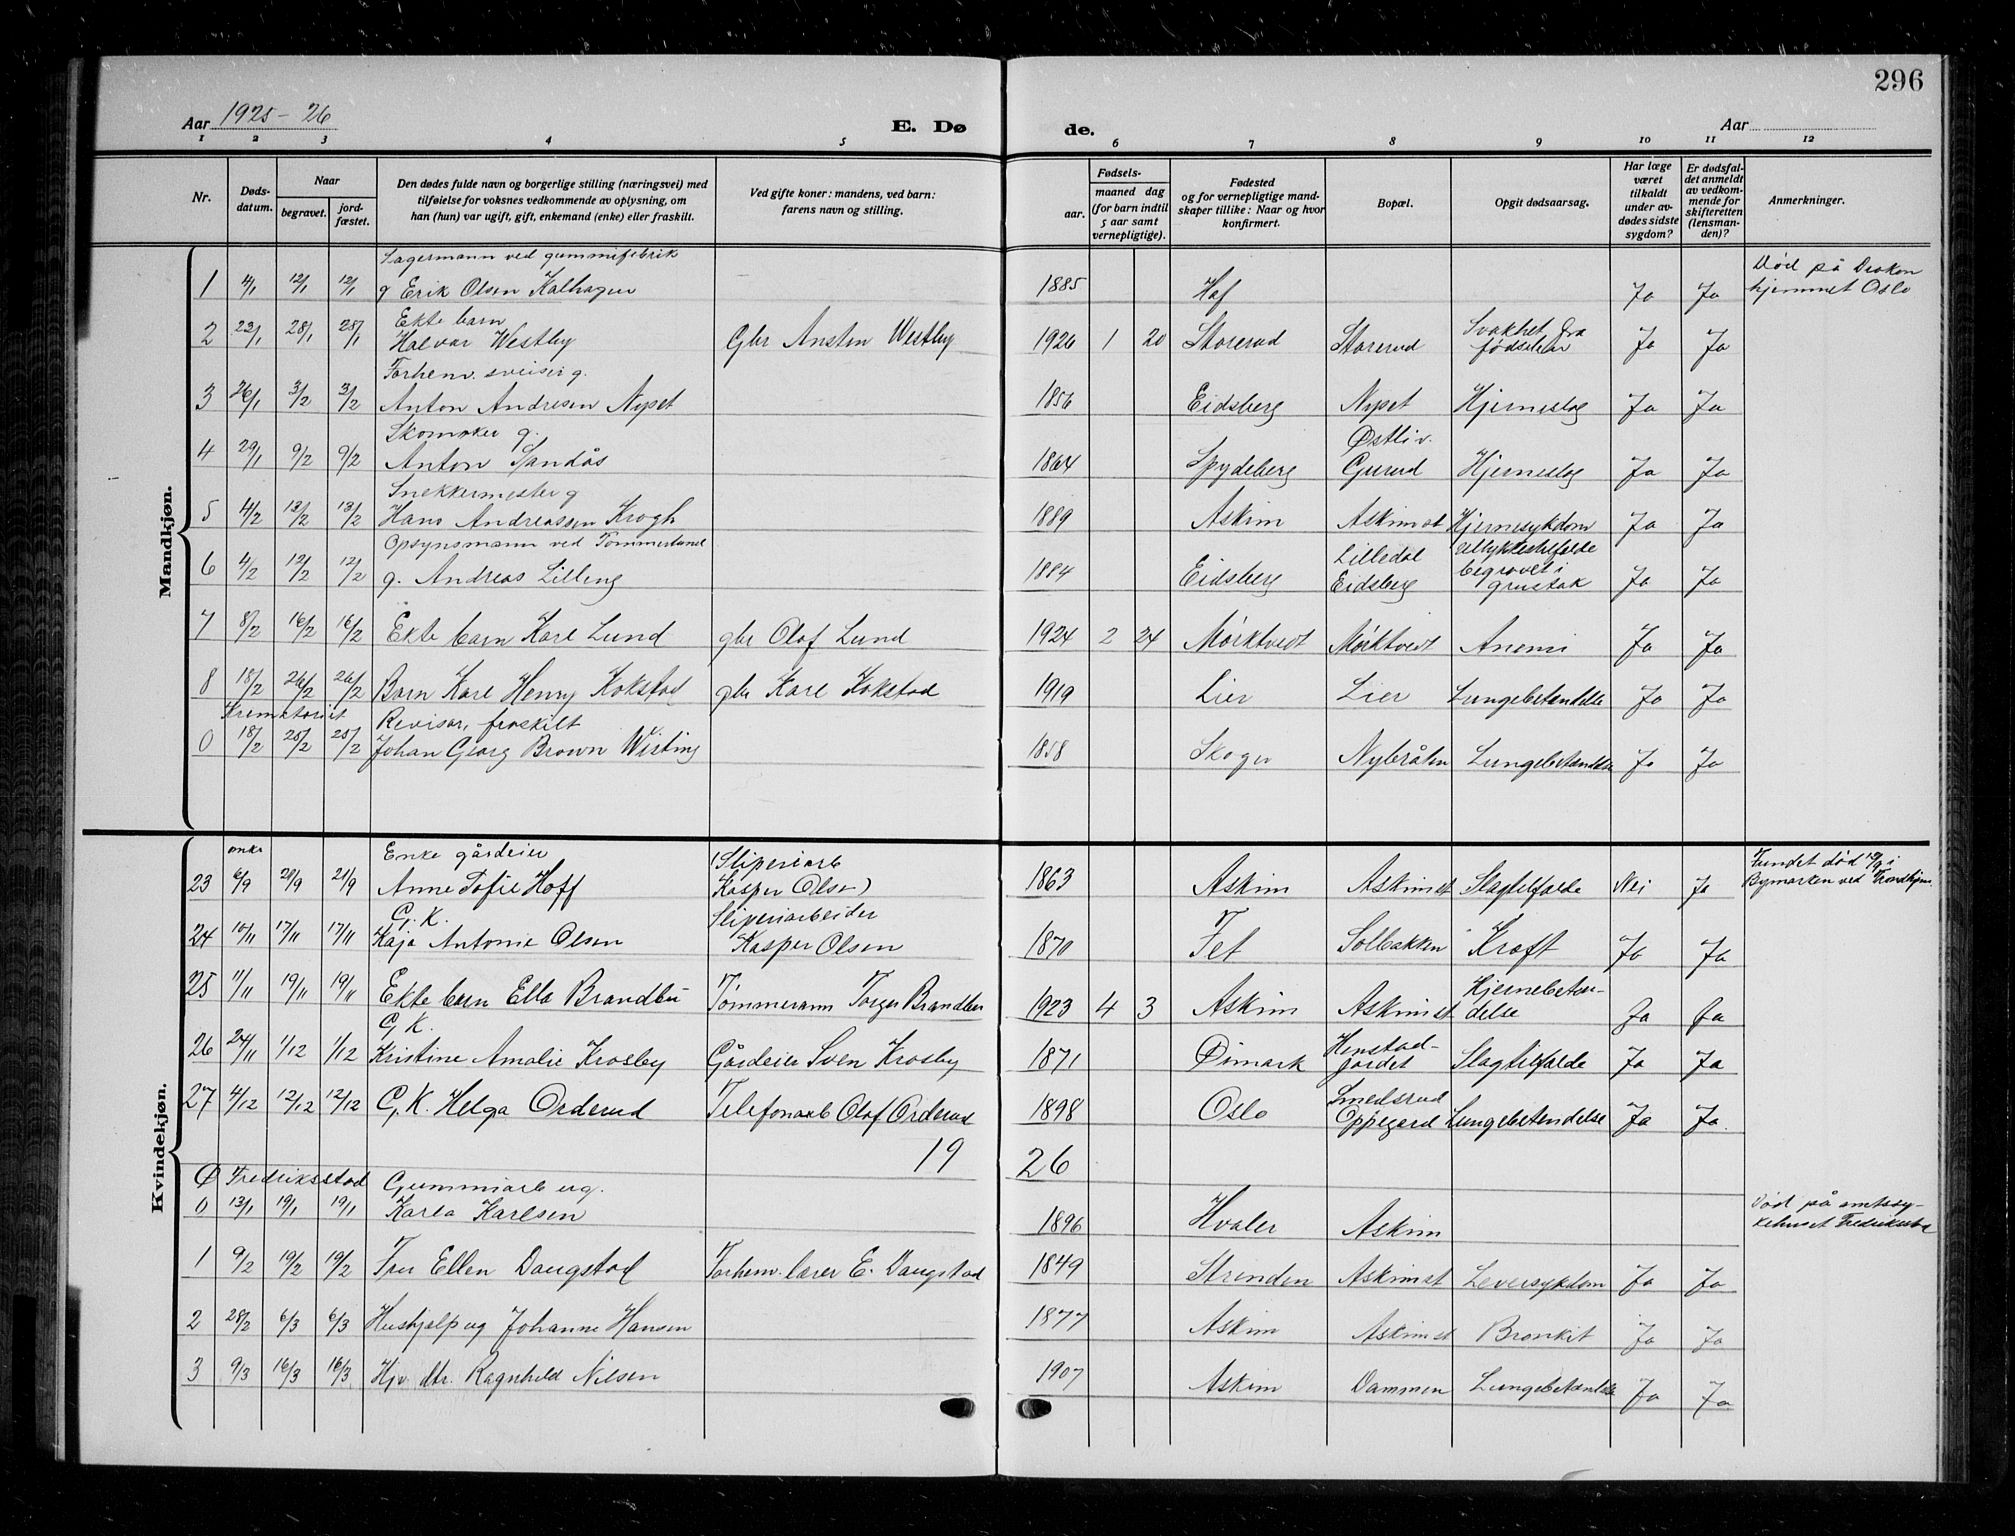 296
Aar 1925-26
E. Dø
de.
Aar
1 2 3 4 5 6 7 8 9 10 11 12
Nr.
Døds-
datum.
Naar
begravet.
jord-
fæstet.
Den dødes fulde navn og borgerlige stilling (næringsvei) med
tilføielse for voksnes vedkommende av oplysning, om
han (hun) var ugift, gift, enkemand (enke) eller fraskilt.
Ved gifte koner: mandens, ved barn:
farens navn og stilling.
Fødsels-
aar.
maaned dag
(for barn indtil
5 aar samt
vernepligtige).
Fødested
og for vernepligtige mand-
skaper tillike: Naar og hvor
konfirmert.
Bopæl.
Opgit dødsaarsag.
Har læge
været
tilkaldt
under av-
dødes sidste
sygdom?
Er dødsfal-
det anmeldt
av vedkom-
mende for
skifteretten
(lensman-
den)?
Anmerkninger.
Mandkjøn.
Lagermann ved gummifabrik
1 4/1 12/1 12/1 g Erik Olsen Kalhagen 1885 Haf Ja Ja Død på Diakon
hjemmet Oslo
Ekte barn
2 23/1 28/1 28/1 Halvar Westby Gbr Ansten Westby 1926 1 20 Storerud Storerud Svakhet fra
fødselen Ja Ja
Forhenv. sveiser g.
3 26/1 3/2 3/2 Anton Andresen Nyset 1856 Eidsberg Nyset Hjerneslag Ja Ja
Skomaker g.
4 29/1 9/2 9/2 Anton Sandås 1864 Spydeberg Østliv.
Gurud Hjerneslag Ja Ja
Snekkermester g
5 4/2 13/2 13/2 Hans Andreassen Krogh 1889 Askim Askim st Hjernesykdom Ja Ja
Opsynsmann ved Tømmerlund
6 4/2 12/2 12/2 g. Andreas Lilleng 1884 Eidsberg Lilledal
Eidsberg Ullykkestilfelde
begravet i
grustak Ja Ja
7 8/2 16/2 16/2 Ekte barn Kåre Lund gbr Olaf Lund 1924 2 24 Mørktvedt Mørktvedt Anemi Ja Ja
8 18/2 26/2 26/2 Barn Kåre Henry Kokstad gbr Karl Kokstad 1919 Lier Lier Lungebetændelse Ja Ja
Krematoriet Revisor, fraskilt
0 18/2 25/2 25/2 Johan Georg Brown Wisting 1858 Skoger Nybråten Lungebetændelse Ja Ja
Kvindekjøn.
onkr Enke gårdeier (Sliperiarb
23 6/9 21/9 21/9 Anne Tofie Hoff Kasper Olsen) 1863 Askim Askim st Slagtilfælde Nei Ja Fundet død 13/9 i
Bymarken ved Trondhjem
G. K. Sliperiarbeider
24 10/11 17/11 17/11 Kaja Antonie Olsen Kasper Olsen 1870 Fet Solbakken Kræft Ja Ja
25 11/11 19/11 19/11 Ekte barn Ella Brandbu Tømmermann Torger Brandbu 1923 4 3 Askim Askim st Hjernebeten-
delse Ja Ja
G. K.
26 24/11 1/12 1/12 Kristine Amalie Krosby Gårdeier Sven Krosby 1871 Øimark Henstad-
jordet Slagtilfælde Ja Ja
27 4/12 12/12 12/12 G. K. Helga Orderud Telefonarb Olaf Orderud 1898 Oslo Smedsrud
Oppegård Lungebetendelse Ja Ja.
19 26
Ø Fredriksstad Gummiarb ug.
0 13/1 19/1 19/1 Karla Karlsen 1896 Hvaler Askim Død på amtssy-
kehuset Fredrikstad
1 9/2 19/2 19/2 Fru Ellen Daugstad Forhenv. lærer E. Daugstad 1849 Strinden Askim st Leversykdom Ja Ja
2 28/2 6/3 6/3 Hushjelp ug Johanne Hansen 1877 Askim Askim st Bronkit Ja Ja
3 9/3 16/3 16/3 Hjv. dtr. Ragnhild Nilsen 1907 Askim Dammen Lungebetændelse Ja Ja